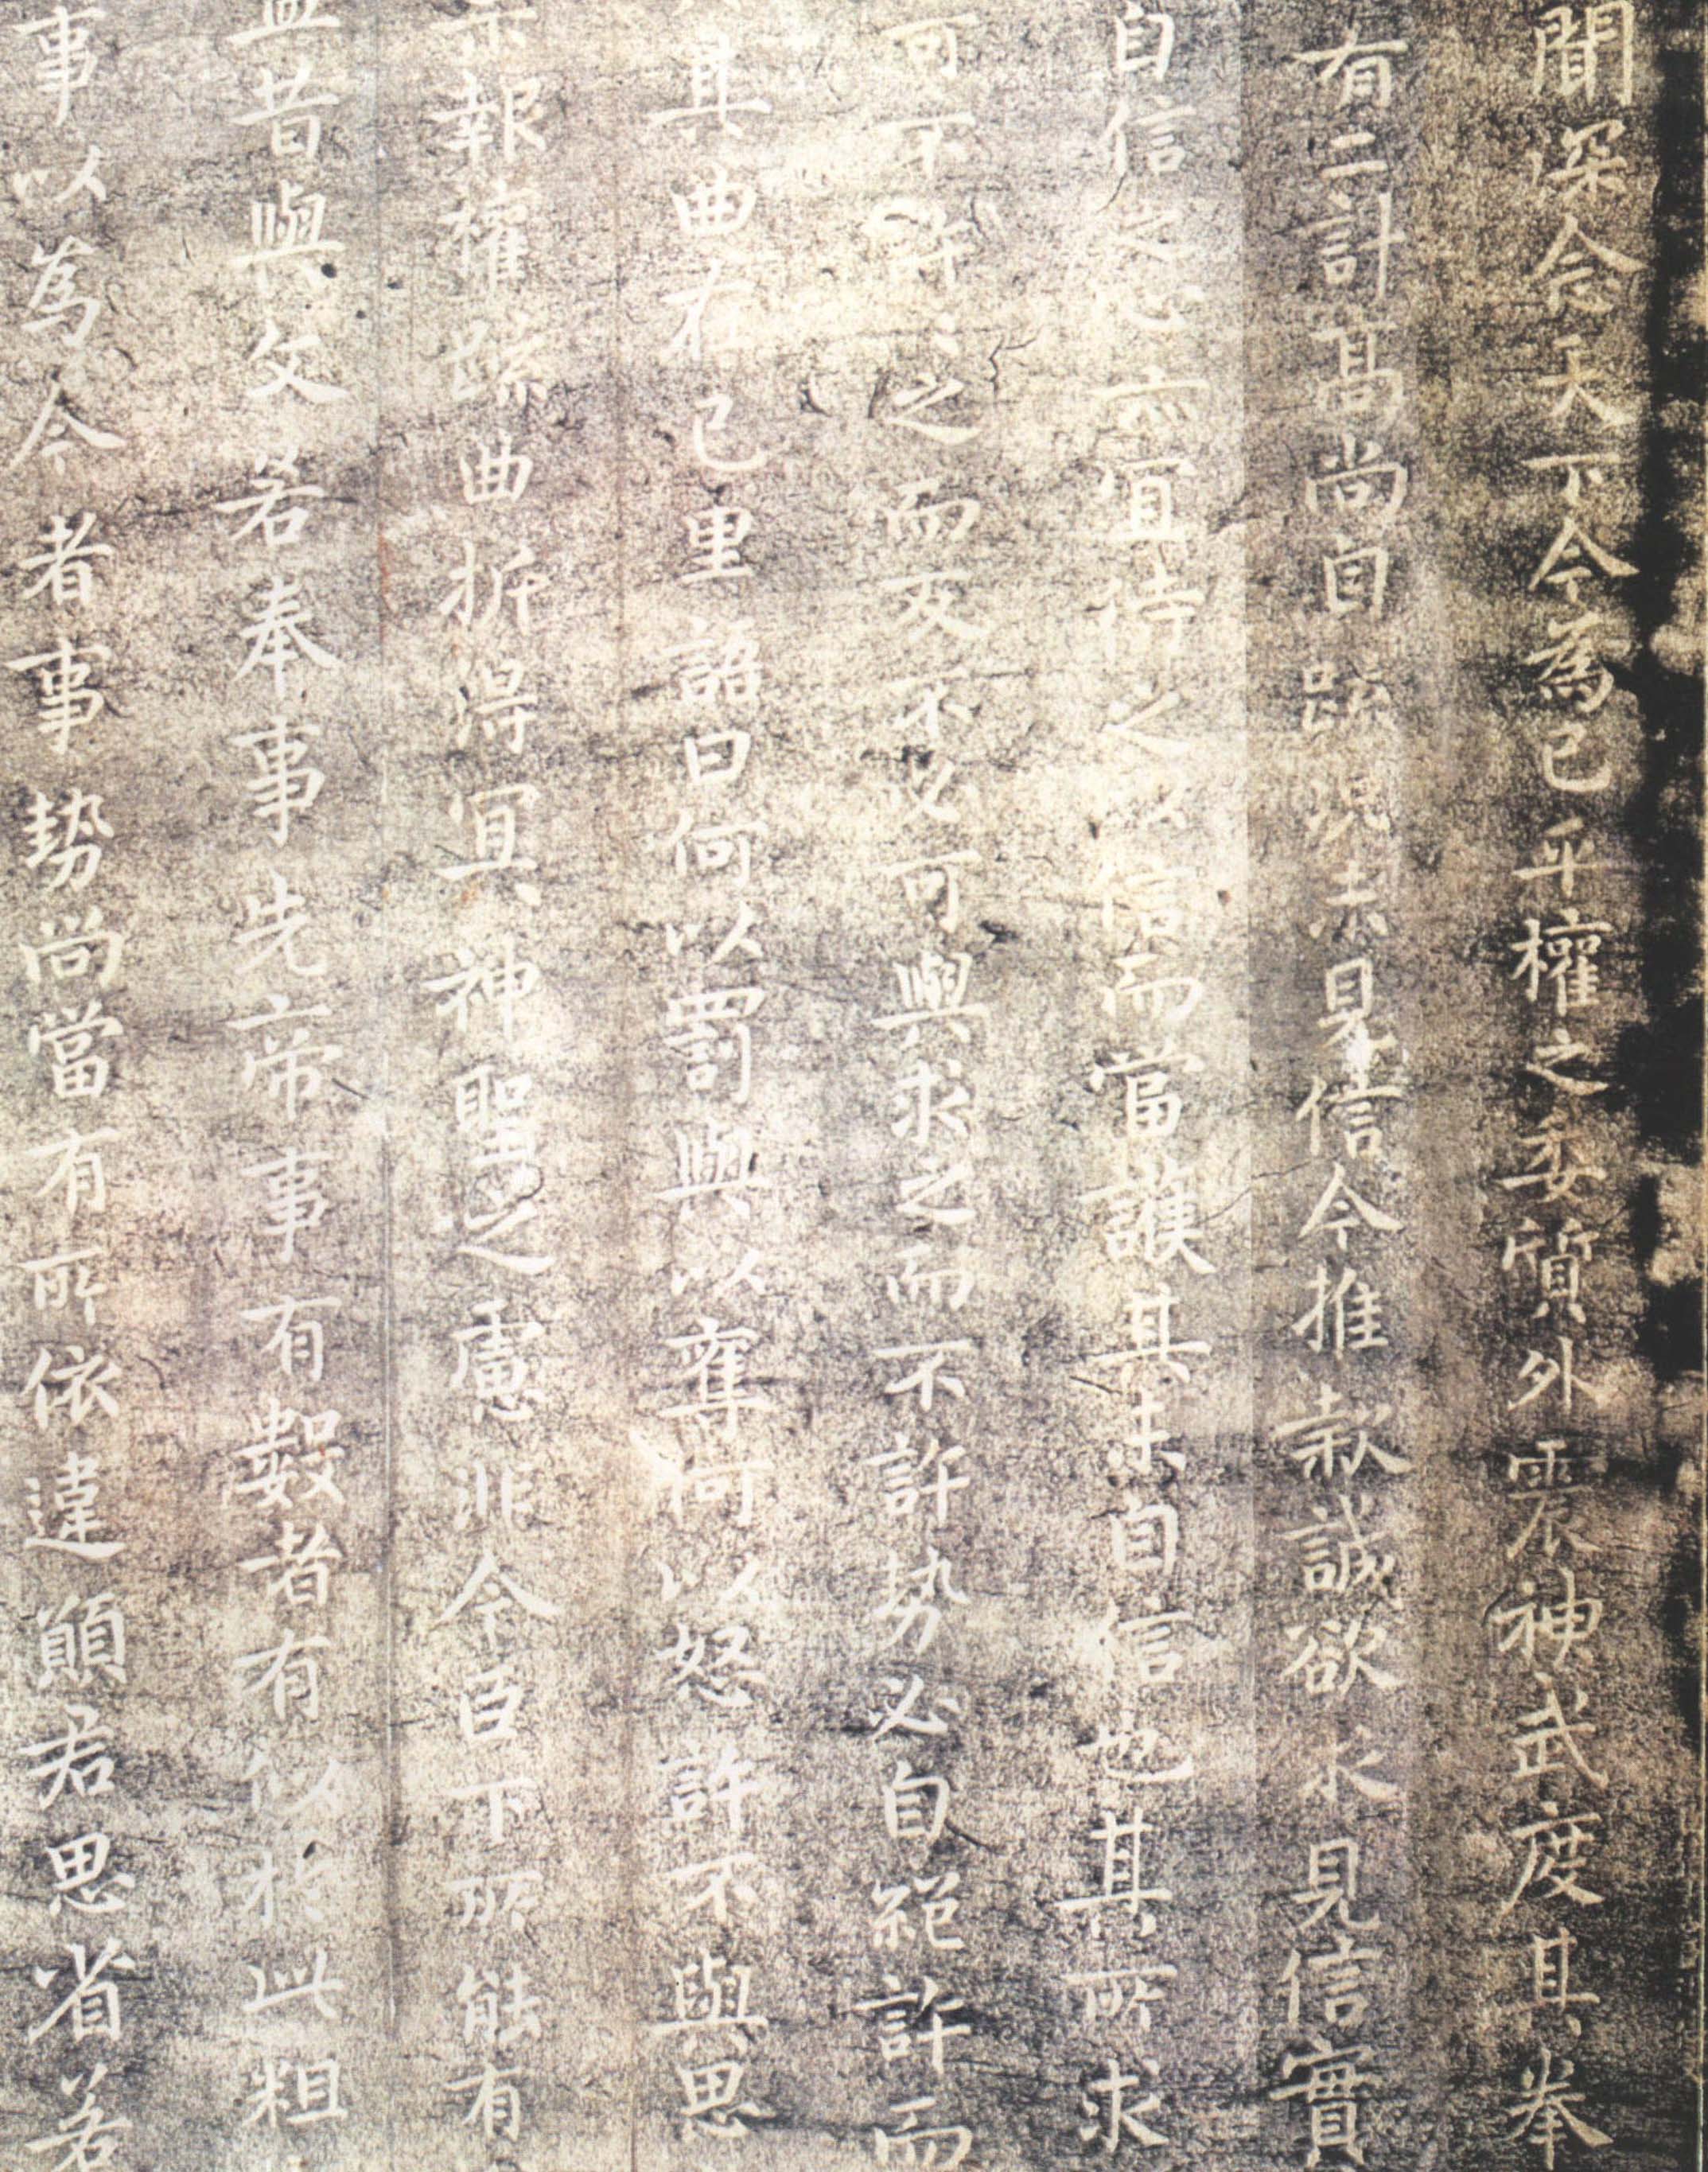 聞深念天下今為已平權之委質外震神武度其拳
有二計高尚自疏況未見信今推款誠欲求見信實
自信之心亦宜待之以信而當護其未自信也其所求
可不許之而反不必可與求之而不許勢必自絕許而
其曲在己里語曰何以罰與以奪何以怒許不與思
示報權疏曲折得宜神聖之慮非今臣下所能有
益昔與文若奉事先帝事有數者有似於此粗
事以為今者事勢尚當有所依違願君思省若